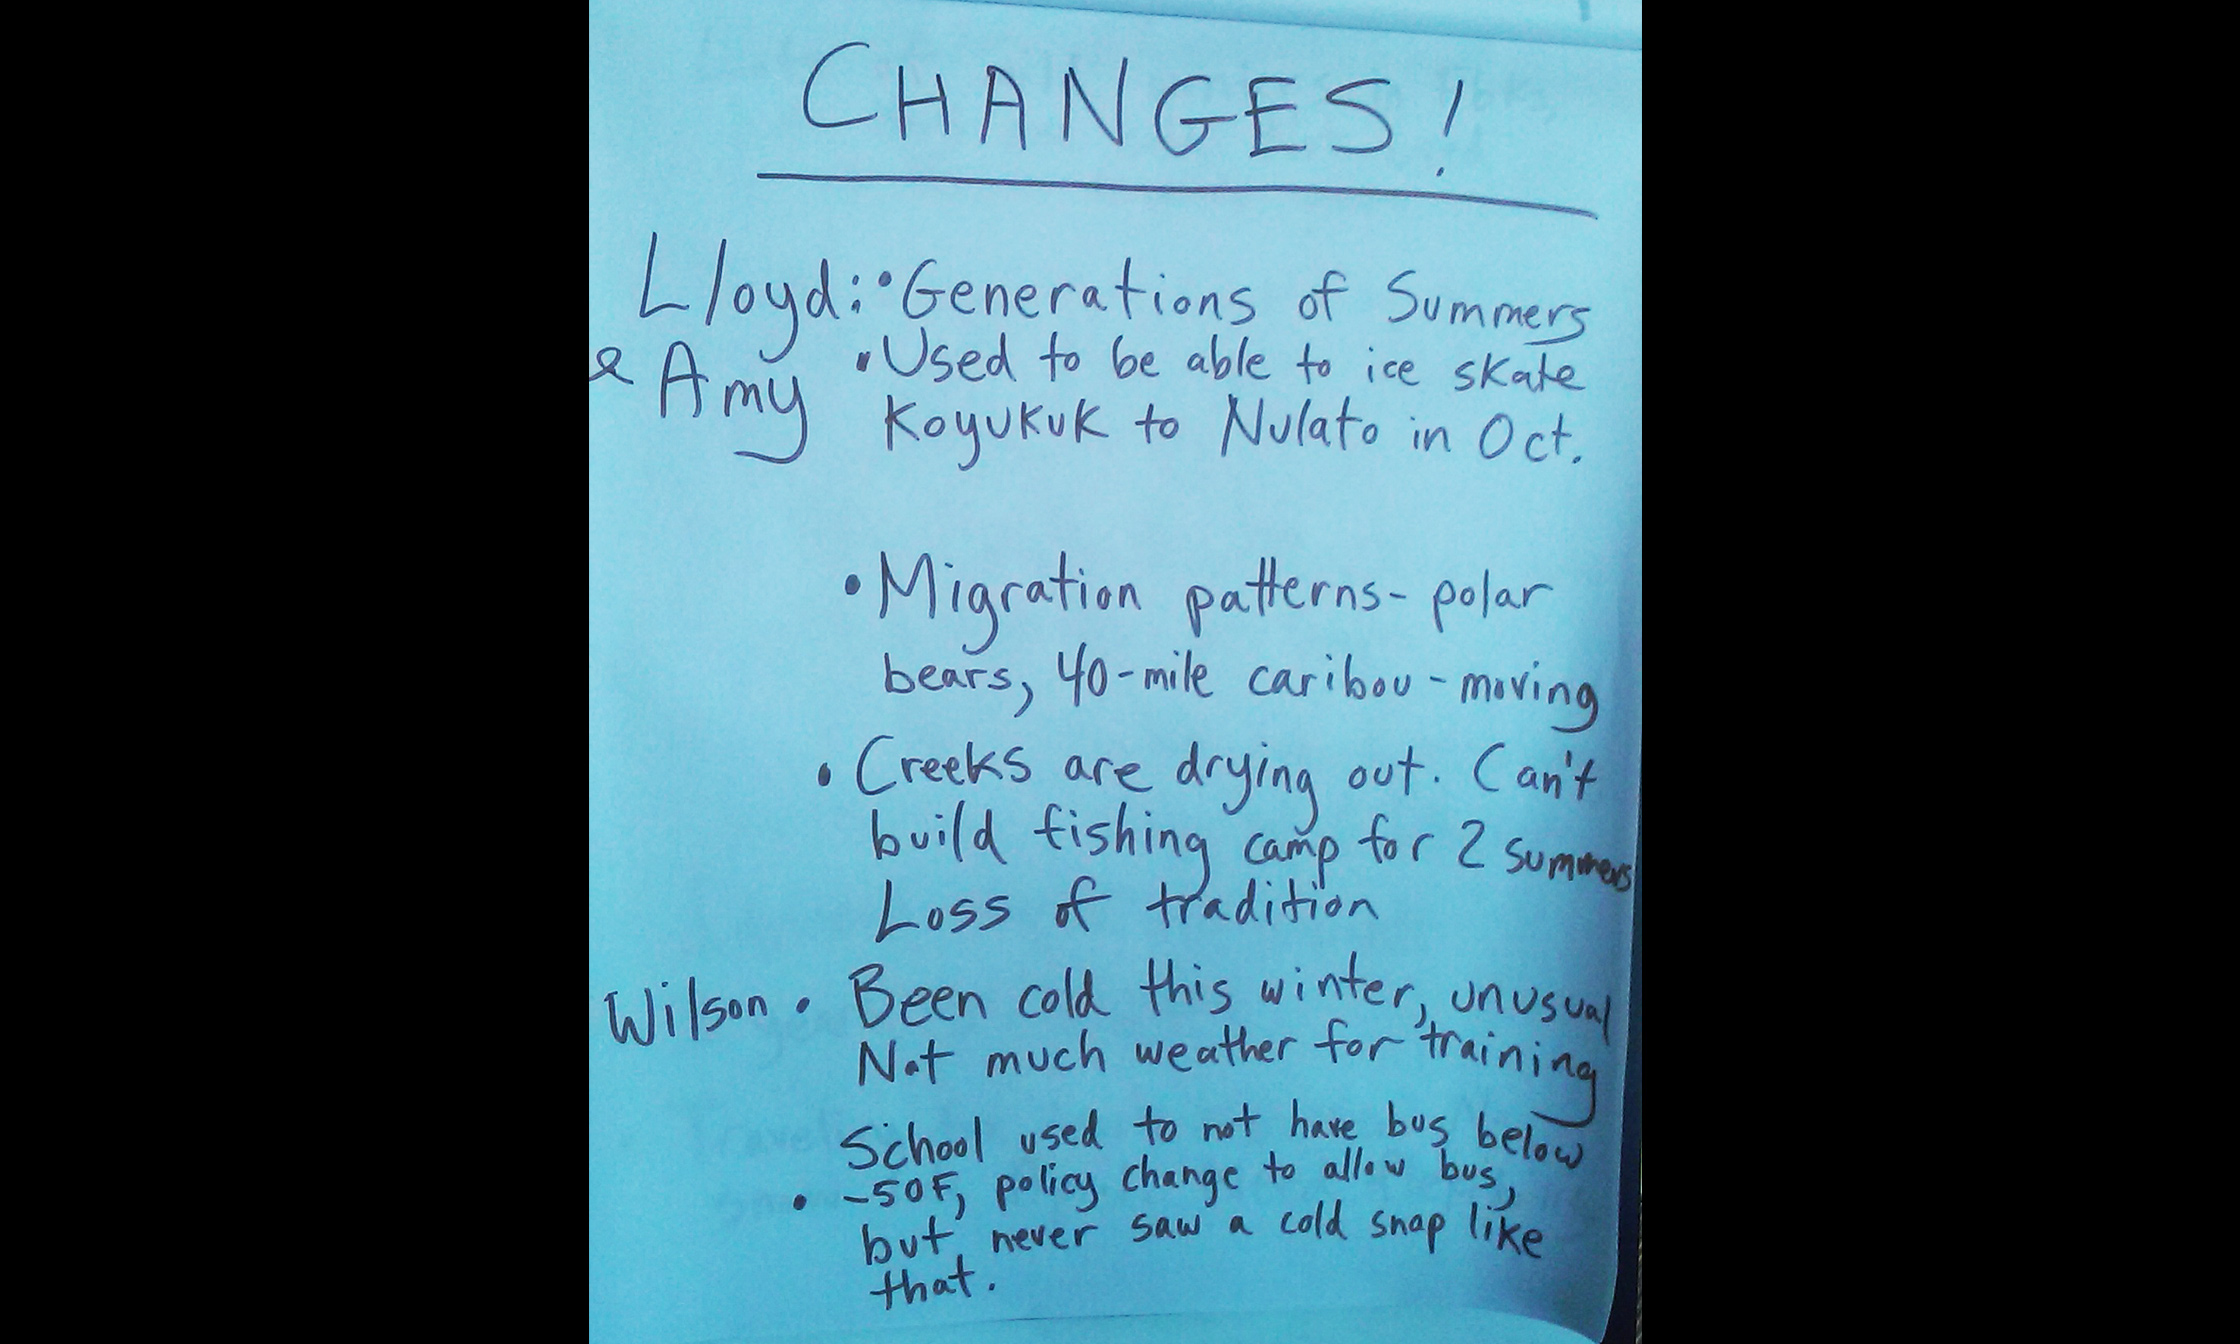 CHANGES!
Lloyd: • Generations of Summers
& Amy • Used to be able to ice skate
Koyukuk to Nulato in Oct.
• Migration patterns - polar
bears, 40-mile caribou - moving
• Creeks are drying out. Can't
build fishing camp for 2 summers
Loss of tradition
Wilson • Been cold this winter, unusual
Not much weather for training
School used to not have bus below
• -50F, policy change to allow bus,
but never saw a cold snap like
that.